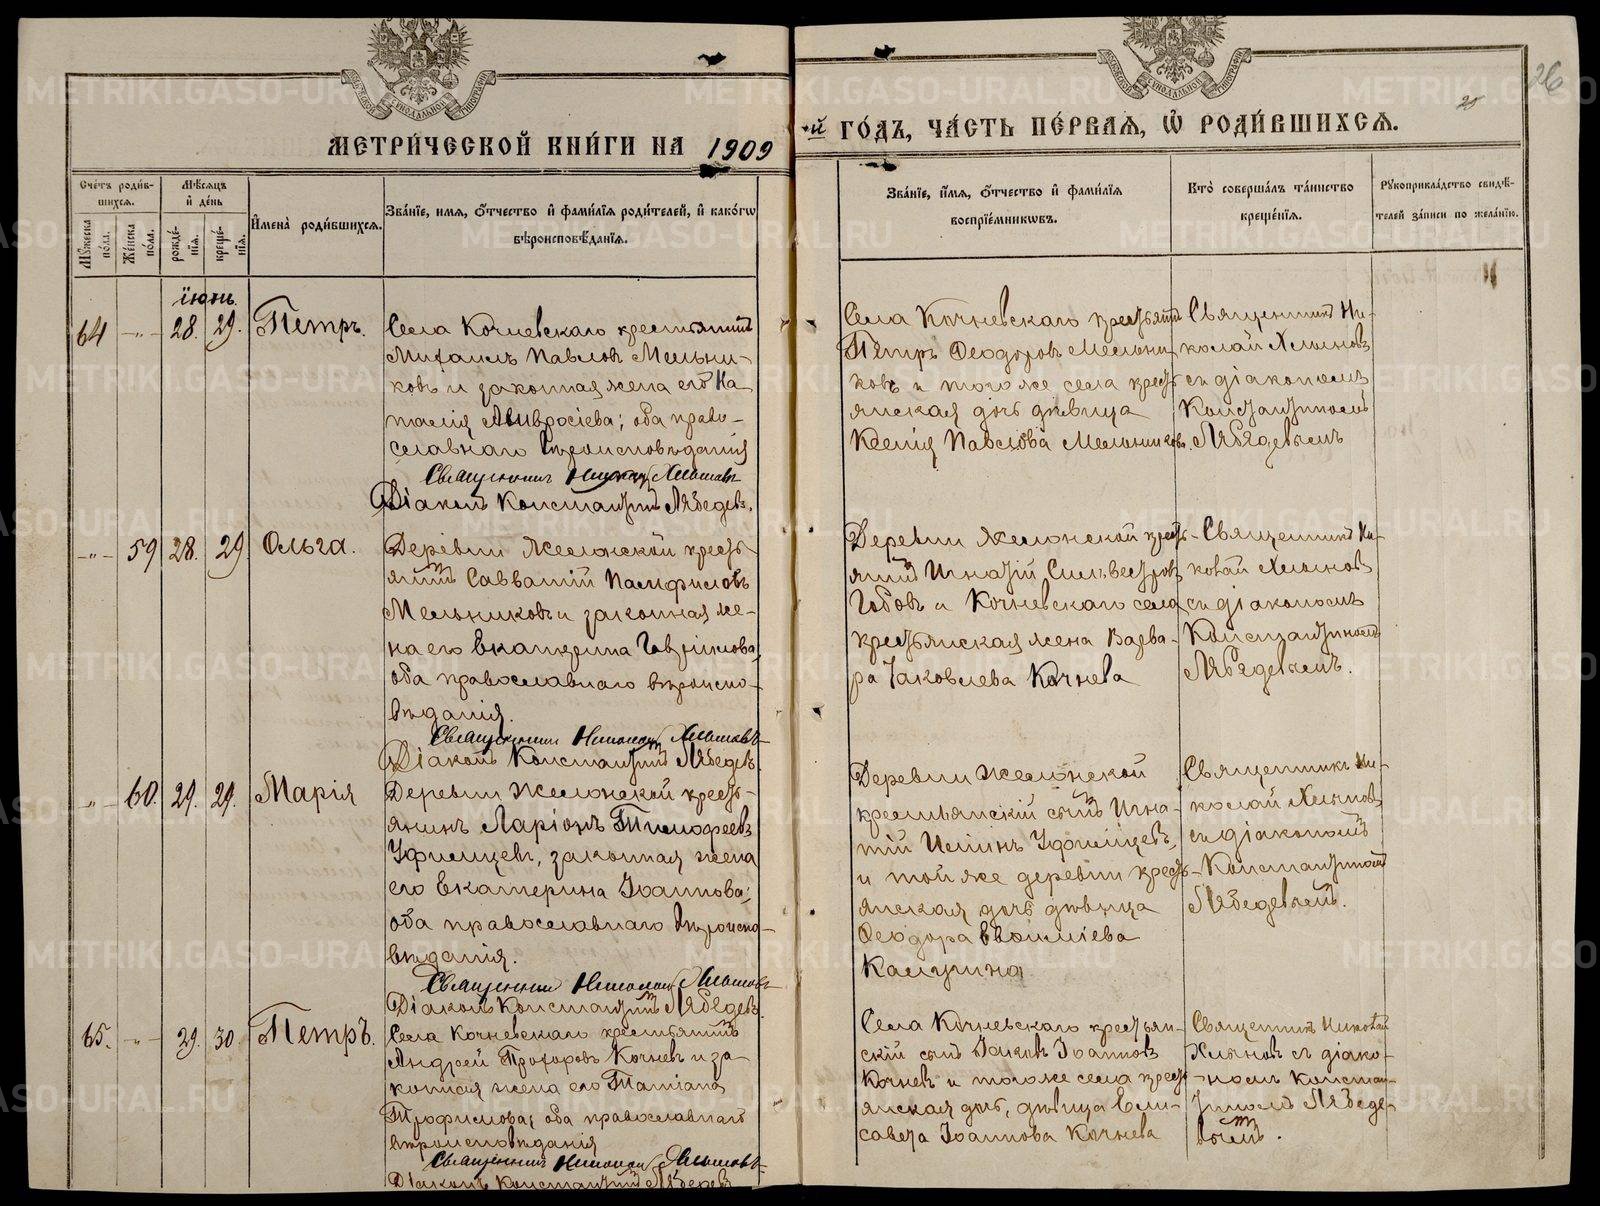 МЕТРИ́ЧЕСКОЙ КНИ́ГИ НА 1909
-й ГО́ДЪ, ЧА́СТЬ ПЕ́РВАЯ, Ѡ РОДИ́ВШИХСЯ.
26
Сче́тъ роди́в-
шихся.
Мѣ́сяцъ
и́ де́нь
Мꙋ́жеска
по́ла.
Же́нска
по́ла.
рожде́-
нія.
креще́-
нія.
И҆мена̀ роди́вшихся.
Зва́ніе, имя, о҆́тчество и҆ фами́лія роди́телей, и҆ како́гѡ
вѣроисповѣ́данія.
Зва́ніе, и҆́мя, о҆́тчество и҆ фами́лія
воспріе́мникѡвъ.
Кто̀ соверша́лъ та́инство
креще́нія.
Рꙋкоприкла́дство свидѣ́-
телей за́писи по жела́нію.
іюнь.
64 -"- 28. 29. Петръ.
Села Кочневскаго крестьянинъ
Михаилъ Павловъ Мельни-
ковъ и законная жена его На-
талія Амвросіева; оба право-
славнаго вѣроисповѣданія
Священникъ Николай Хлыновъ
Діаконъ Константинъ Лебедевъ.
Села Кочневскаго крестьянинъ
Петръ Ѳеодоровъ Мельни-
ковъ и того же села кресть-
янская дочь дѣвица
Ксенія Павлова Мельникова.
Священникъ Ни-
колай Хлыновъ
съ діакономъ
Константиномъ
Лебедевымъ
-"- 59 28. 29. Ольга.
Деревни Жилонской кресть-
янинъ Савватій Памфиловъ
Мельниковъ и законная же-
на его Екатерина Гавріилова,
оба православнаго вѣроиспо-
вѣданія.
Священникъ Николай Хлыновъ
Діаконъ Константинъ Лебедевъ.
Деревни Жилонской кресть-
янинъ Игнатій Сильвестровъ
и Кочневскаго села
крестьянская жена Варва-
ра Іаковлева Кочнева
Священникъ Ни-
колай Хлыновъ
съ діакономъ
Константиномъ
Лебедевымъ.
-"- 60. 29. 29. Марія
Деревни Жилонской кресть-
янинъ Ларіонъ Тимофеевъ
Уфимцевъ, законная жена
его Екатерина Іоаннова;
оба православнаго вѣроиспо-
вѣданія.
Священникъ Николай Хлыновъ
Діаконъ Константинъ Лебедевъ.
Деревни Жилонской
крестьянскій сынъ Игна-
тій Уфимцевъ,
и той же деревни кресть-
янская дочь дѣвица
Ѳеодора Евѳиміева
Калугина
Священникъ Ни-
колай Хлыновъ
съ діакономъ
Константиномъ
Лебедевымъ.
65. -"- 29. 30. Петръ.
Села Кочневскаго крестьянинъ
Андрей Прохоровъ Кочневъ и за-
конная жена его Татіана
Трофимова; оба православнаго
вѣроисповѣданія
Священникъ Николай Хлыновъ
Діаконъ Константинъ Лебедевъ
Села Кочневскаго крестьян-
скій сынъ Іаковъ Іоанновъ
Кочневъ и того же села кресть-
янская дочь, дѣвица Ели-
савета Іоаннова Кочнева
Священникъ Николай
Хлыновъ съ діако-
номъ Констан-
тиномъ Лебеде-
вымъ.
METRIKI.GASO-URAL.RU